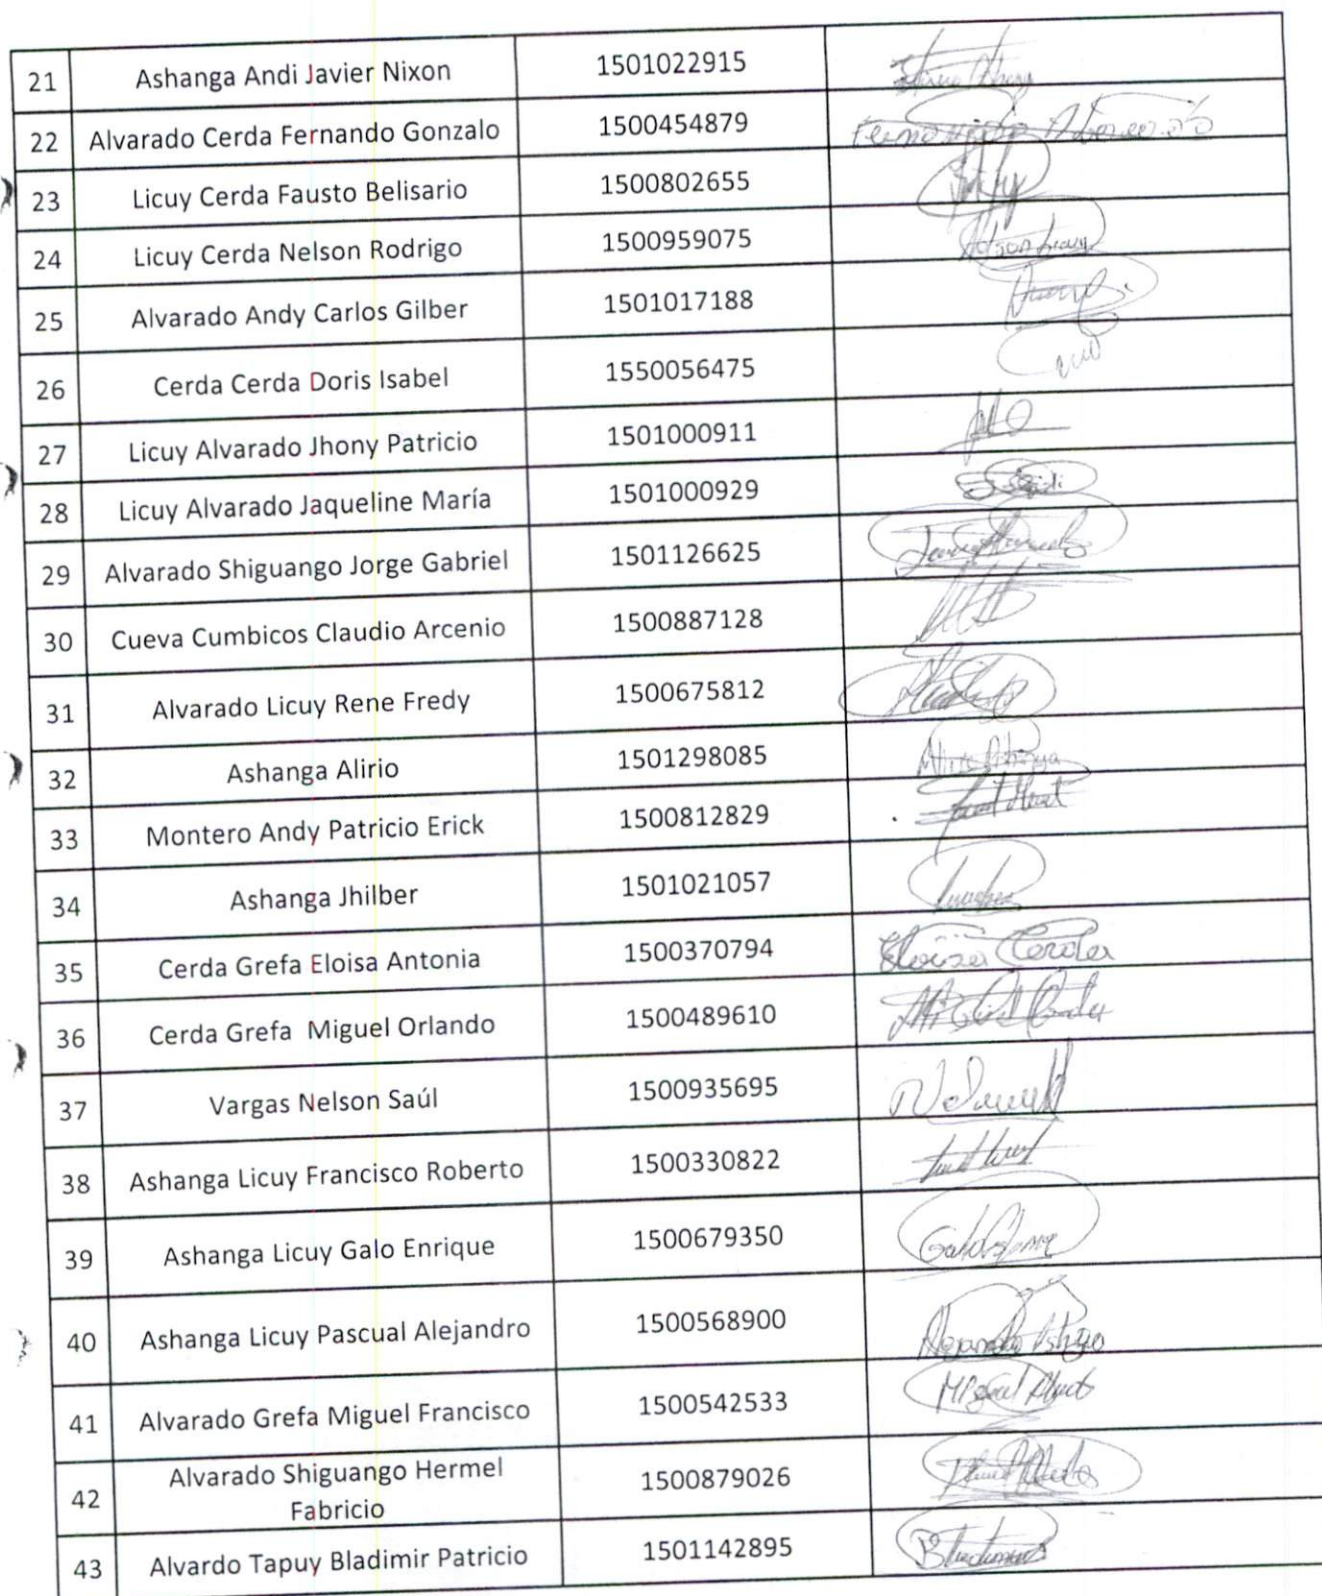 21 Ashanga Andi Javier Nixon 1501022915
22 Alvarado Cerda Fernando Gonzalo 1500454879
23 Licuy Cerda Fausto Belisario 1500802655
24 Licuy Cerda Nelson Rodrigo 1500959075
25 Alvarado Andy Carlos Gilber 1501017188
26 Cerda Cerda Doris Isabel 1550056475
27 Licuy Alvarado Jhony Patricio 1501000911
28 Licuy Alvarado Jaqueline María 1501000929
29 Alvarado Shiguango Jorge Gabriel 1501126625
30 Cueva Cumbicos Claudio Arcenio 1500887128
31 Alvarado Licuy Rene Fredy 1500675812
32 Ashanga Alirio 1501298085
33 Montero Andy Patricio Erick 1500812829
34 Ashanga Jhilber 1501021057
35 Cerda Grefa Eloisa Antonia 1500370794 Eloiza Cerda
36 Cerda Grefa Miguel Orlando 1500489610
37 Vargas Nelson Saúl 1500935695
38 Ashanga Licuy Francisco Roberto 1500330822
39 Ashanga Licuy Galo Enrique 1500679350
40 Ashanga Licuy Pascual Alejandro 1500568900
41 Alvarado Grefa Miguel Francisco 1500542533
42 Alvarado Shiguango Hermel
Fabricio 1500879026
43 Alvardo Tapuy Bladimir Patricio 1501142895